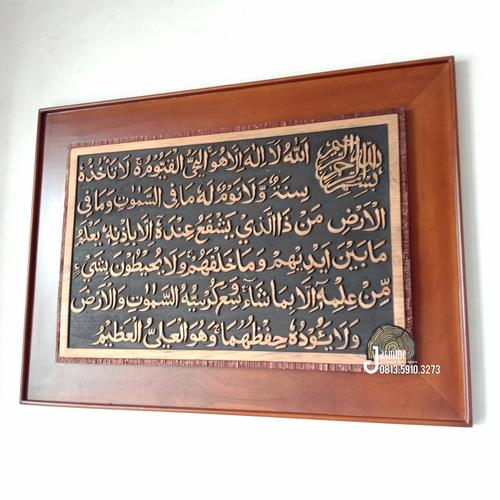 بِسْمِ اللهِ الرَّحْمٰنِ الرَّحِيْمِ
اَللهُ لَا اِلٰهَ اِلَّا هُوَ الْحَيُّ الْقَيُّوْمُ ەۚ لَا تَأْخُذُهٗ
سِنَةٌ وَّلَا نَوْمٌ لَهٗ مَا فِى السَّمٰوٰتِ وَمَا فِى
الْاَرْضِ مَنْ ذَا الَّذِيْ يَشْفَعُ عِنْدَهٗ اِلَّا بِاِذْنِهٖ يَعْلَمُ
مَا بَيْنَ اَيْدِيْهِمْ وَمَا خَلْفَهُمْ وَلَا يُحِيْطُوْنَ بِشَيْءٍ
مِّنْ عِلْمِهٖ اِلَّا بِمَا شَاءَ وَسِعَ كُرْسِيُّهُ السَّمٰوٰتِ وَالْاَرْضَ
وَلَا يَئُوْدُهٗ حِفْظُهُمَا وَهُوَ الْعَلِيُّ الْعَظِيْمُ
Jasmine
0813.5910.3273